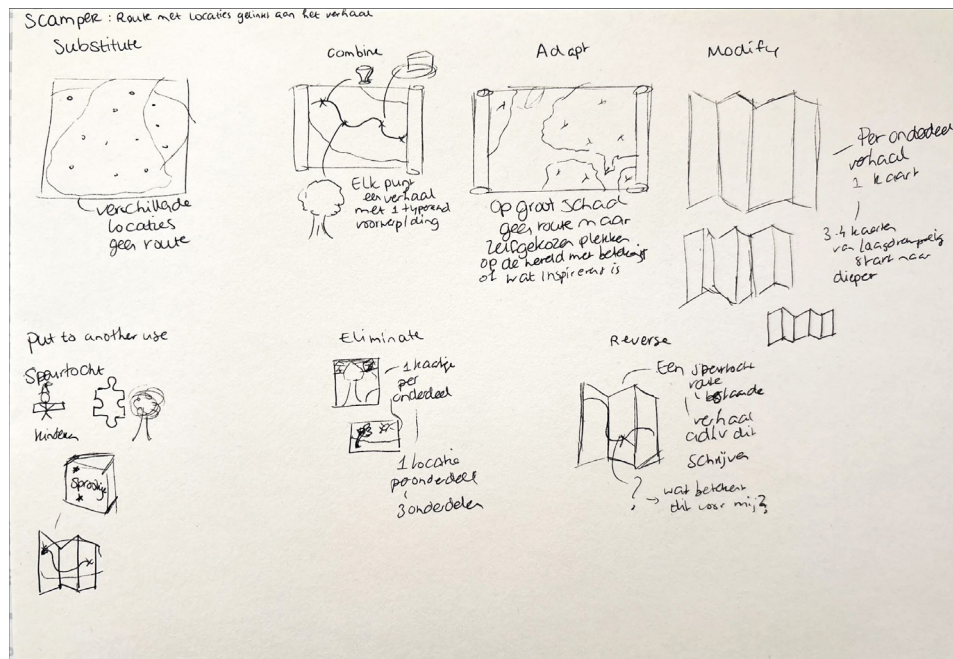 SCAMPER : Route met locaties gelinkt aan het verhaal
Substitute
verschillende
locaties
geen route
Combine
Elk punt
een verhaal
met 1 typerend
voorwerp/ding
Adapt
op groot schaal
geen route maar
zelfgekozen plekken
op de wereld met betekenis
of wat inspirerent is
Modify
Per onderdeel
verhaal
1 kaart
3-4 kaarten
van laagdrempelig
start naar
dieper
Put to another use
Speurtocht
kinderen
Sprookje
Eliminate
1 kaartje
per
onderdeel
1 locatie
per onderdeel
3 onderdelen
Reverse
Een speurtocht
route
bestaande
verhaal
adhv dit
schrijven
?
wat betekent
dit voor mij?